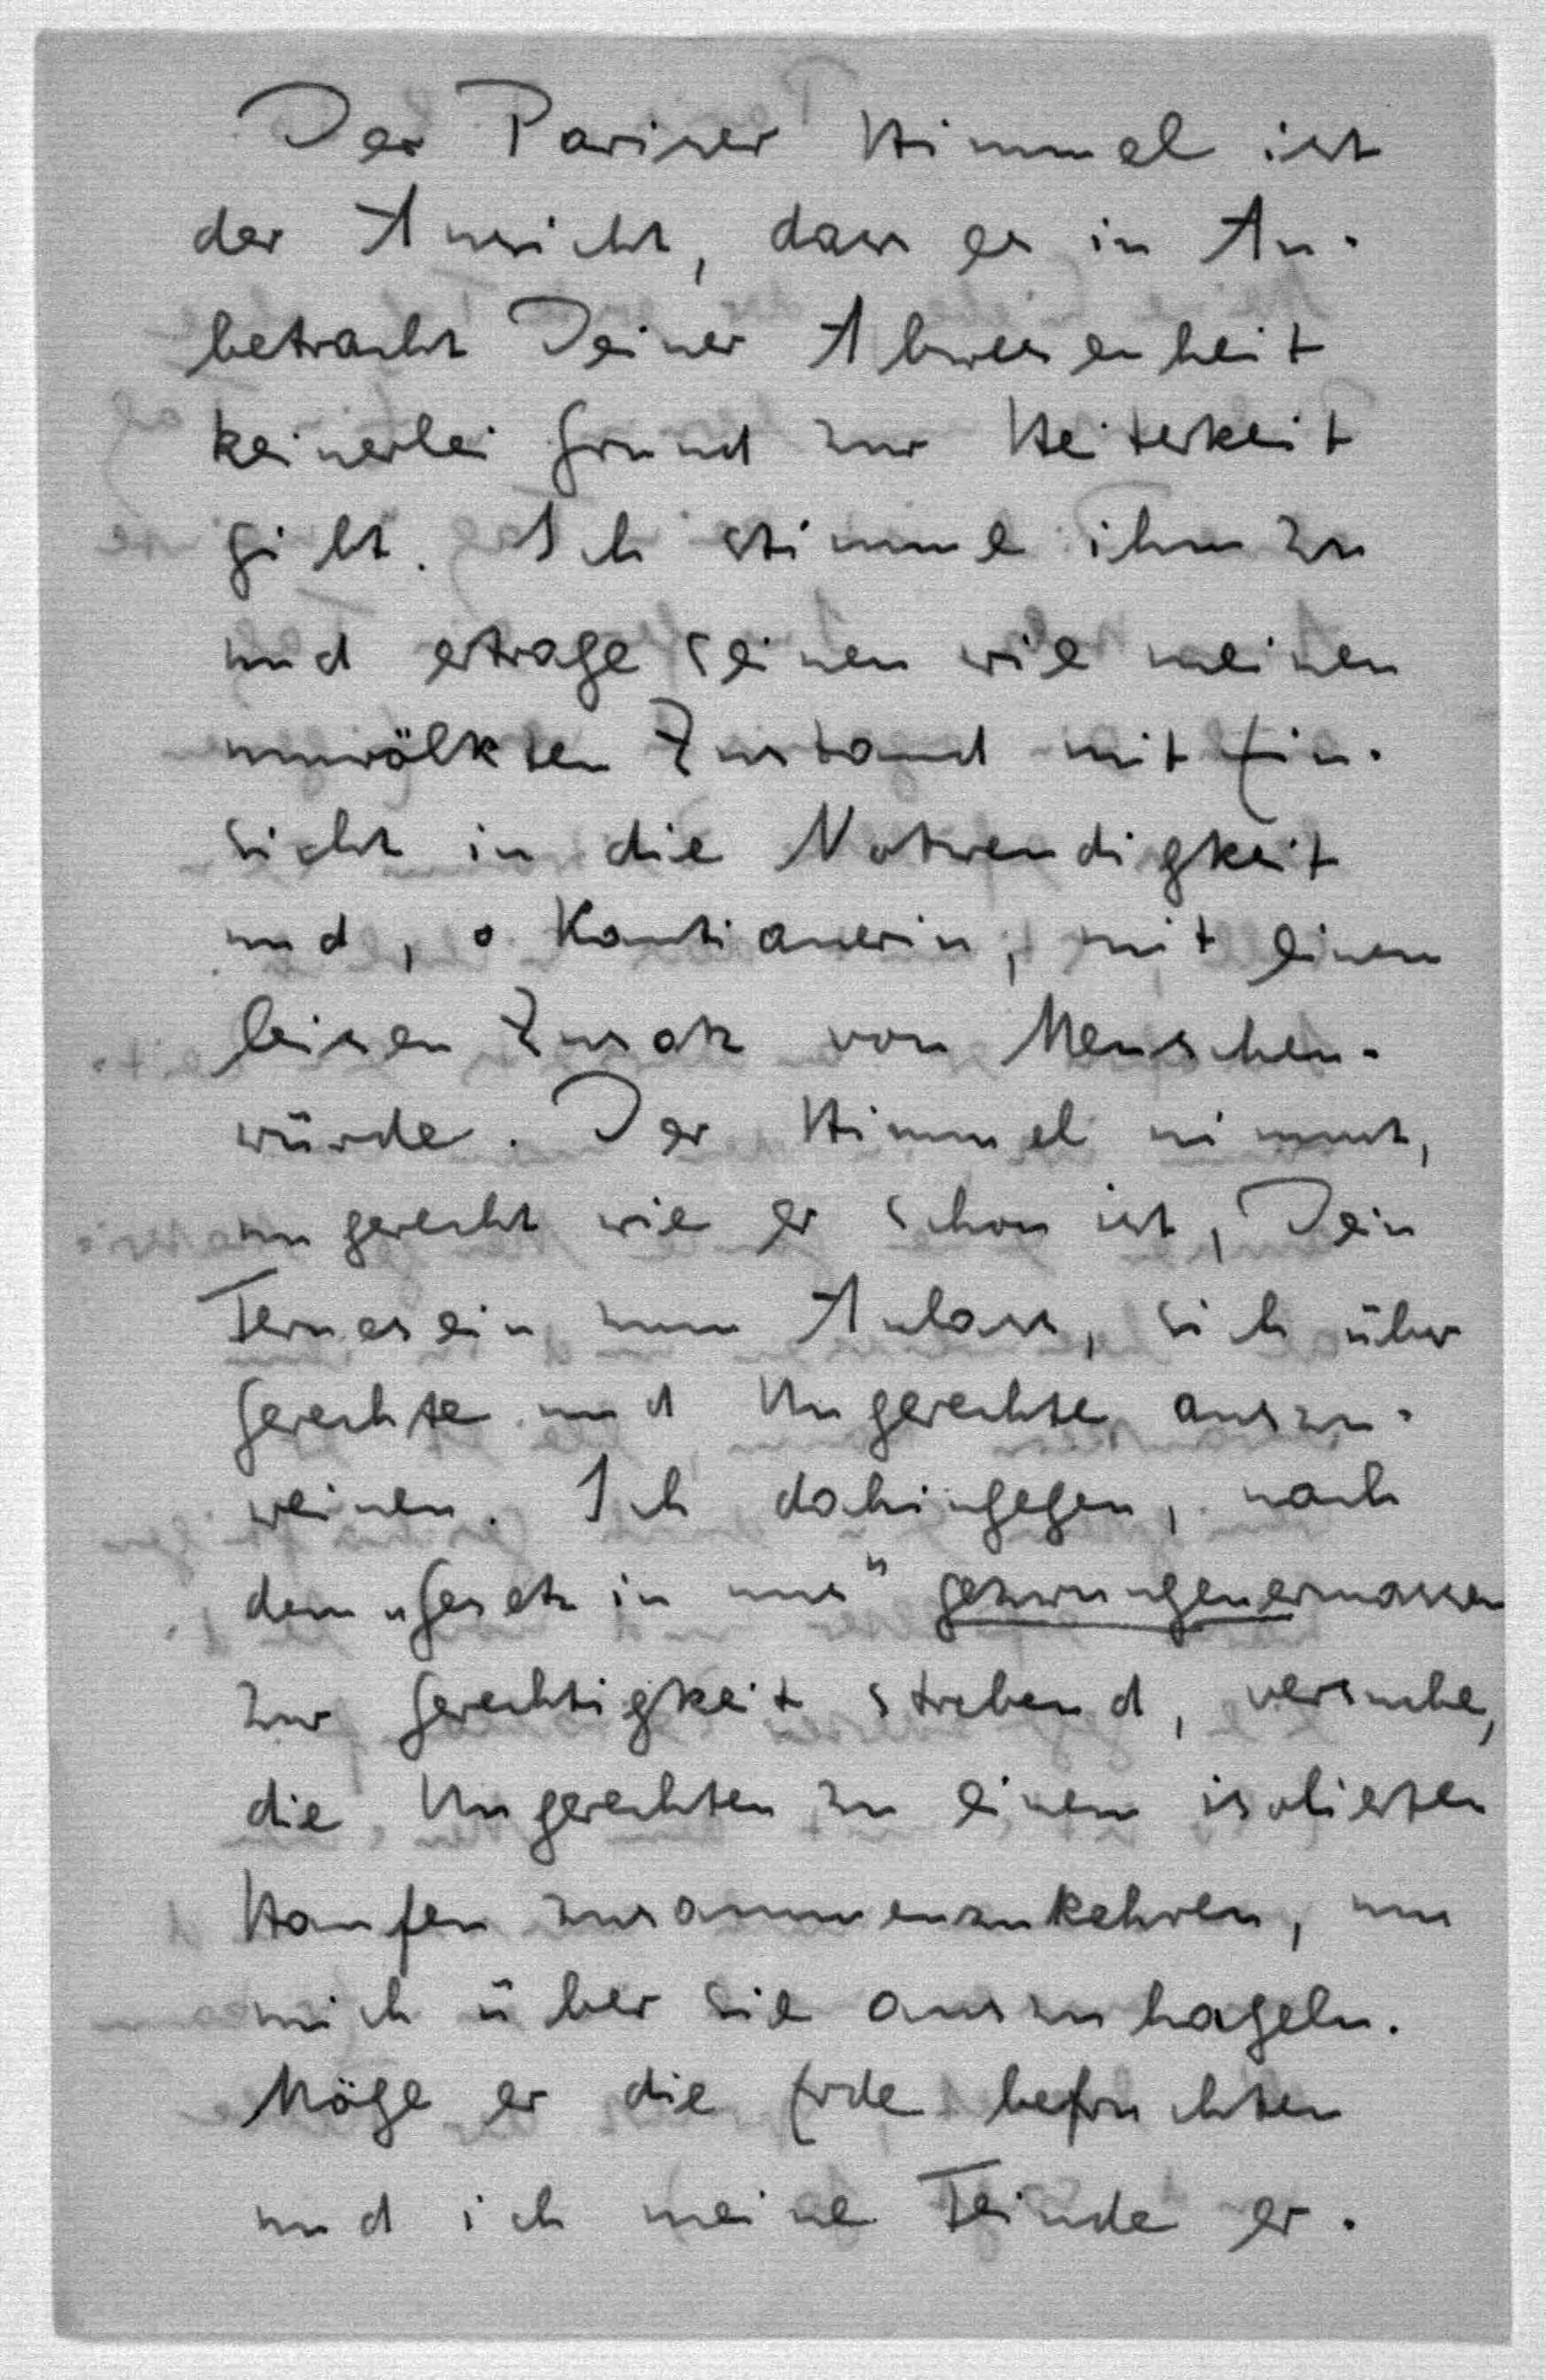 Der Pariser Himmel ist
der Ansicht, dass es in An-
betracht Deiner Abwesenheit
keinerlei Grund zur Heiterkeit
gibt. Ich stimme ihm zu
und ertrage seinen wie meinen
umwölkten Zustand mit Ein-
sicht in die Notwendigkeit
und, o Kantianerin, mit einem
leisen Zusatz von Menschen-
würde. Der Himmel nimmt,
ungerecht wie er schon ist, Dein
Fernesein zum Anlass, sich über
Gerechte und Ungerechte auszu-
weinen. Ich dahingegen, nach
dem „Gesetz in uns" gezwungenermassen
zur Gerechtigkeit strebend, versuche,
die Ungerechten zu einem isolierten
Haufen zusammenzukehren, um
mich über sie auszuhageln.
Möge er die Erde befruchten
und ich meine Feinde er-